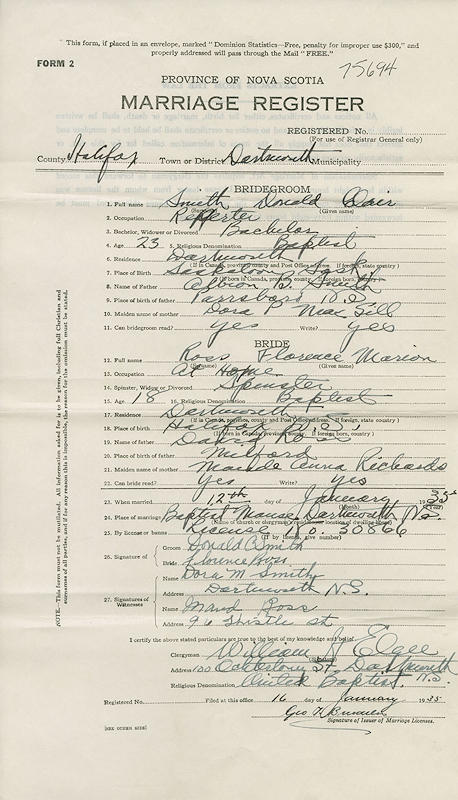 This form, if placed in an envelope, marked "Dominion Statistics—Free, penalty for improper use $300," and
properly addressed will pass through the Mail "FREE."
FORM 2
75694
PROVINCE OF NOVA SCOTIA
MARRIAGE REGISTER
REGISTERED No.
(For use of Registrar General only)
County Halifax Town or District Dartmouth Municipality
BRIDEGROOM
1. Full name Smith Donald
(Given name)
2. Occupation Reporter
3. Bachelor, Widower or Divorced Bachelor
4. Age 23 5. Religious Denomination Baptist
6. Residence Dartmouth
(If in Canada, province, county and Post Office address. If foreign, state country)
7. Place of Birth Saskatoon Sask
(If born in Canada, province, county. If foreign born, country)
8. Name of Father B. Smith
9. Place of birth of father Parrsboro N.S.
10. Maiden name of mother Dora P
11. Can bridegroom read? yes Write? yes
BRIDE
12. Full name Ross Florence Marion
(Given name)
13. Occupation At Home
14. Spinster, Widow or Divorced Spinster
15. Age 18 16. Religious Denomination Baptist
17. Residence Dartmouth
(If in Canada, province, county and Post Office address. If foreign, state country)
18. Place of birth Halifax N.S.
19. Name of father Ross
20. Place of birth of father Milford
21. Maiden name of mother Maude Anna Richards
22. Can bride read? Yes Write? Yes
23. When married 12th day of January 1935
(Month) (Year)
24. Place of marriage Baptist Manse, Dartmouth N.S.
25. By license or banns License No. 30866
(If by license, give number)
26. Signature of
Groom Donald Smith
Bride Florence Ross
27. Signatures of Witnesses
Name Dora M Smith
Address Dartmouth N.S.
Name Maud Ross
Address 96 Thistle st
I certify the above stated particulars are true to the best of my knowledge and belief.
Clergyman William
(Signature)
Address 100 Ochterloney St. Dartmouth N.S.
Religious Denomination United Baptist
Registered No. Filed at this office 16 day of January 1935
Geo
Signature of Issuer of Marriage Licenses.
[SEE OTHER SIDE]
NOTE.—This form must not be mutilated. All information asked for is to be given, including full Christian and
surnames of all parties, and if for any reason this is impossible, the reason for the omission must be stated.